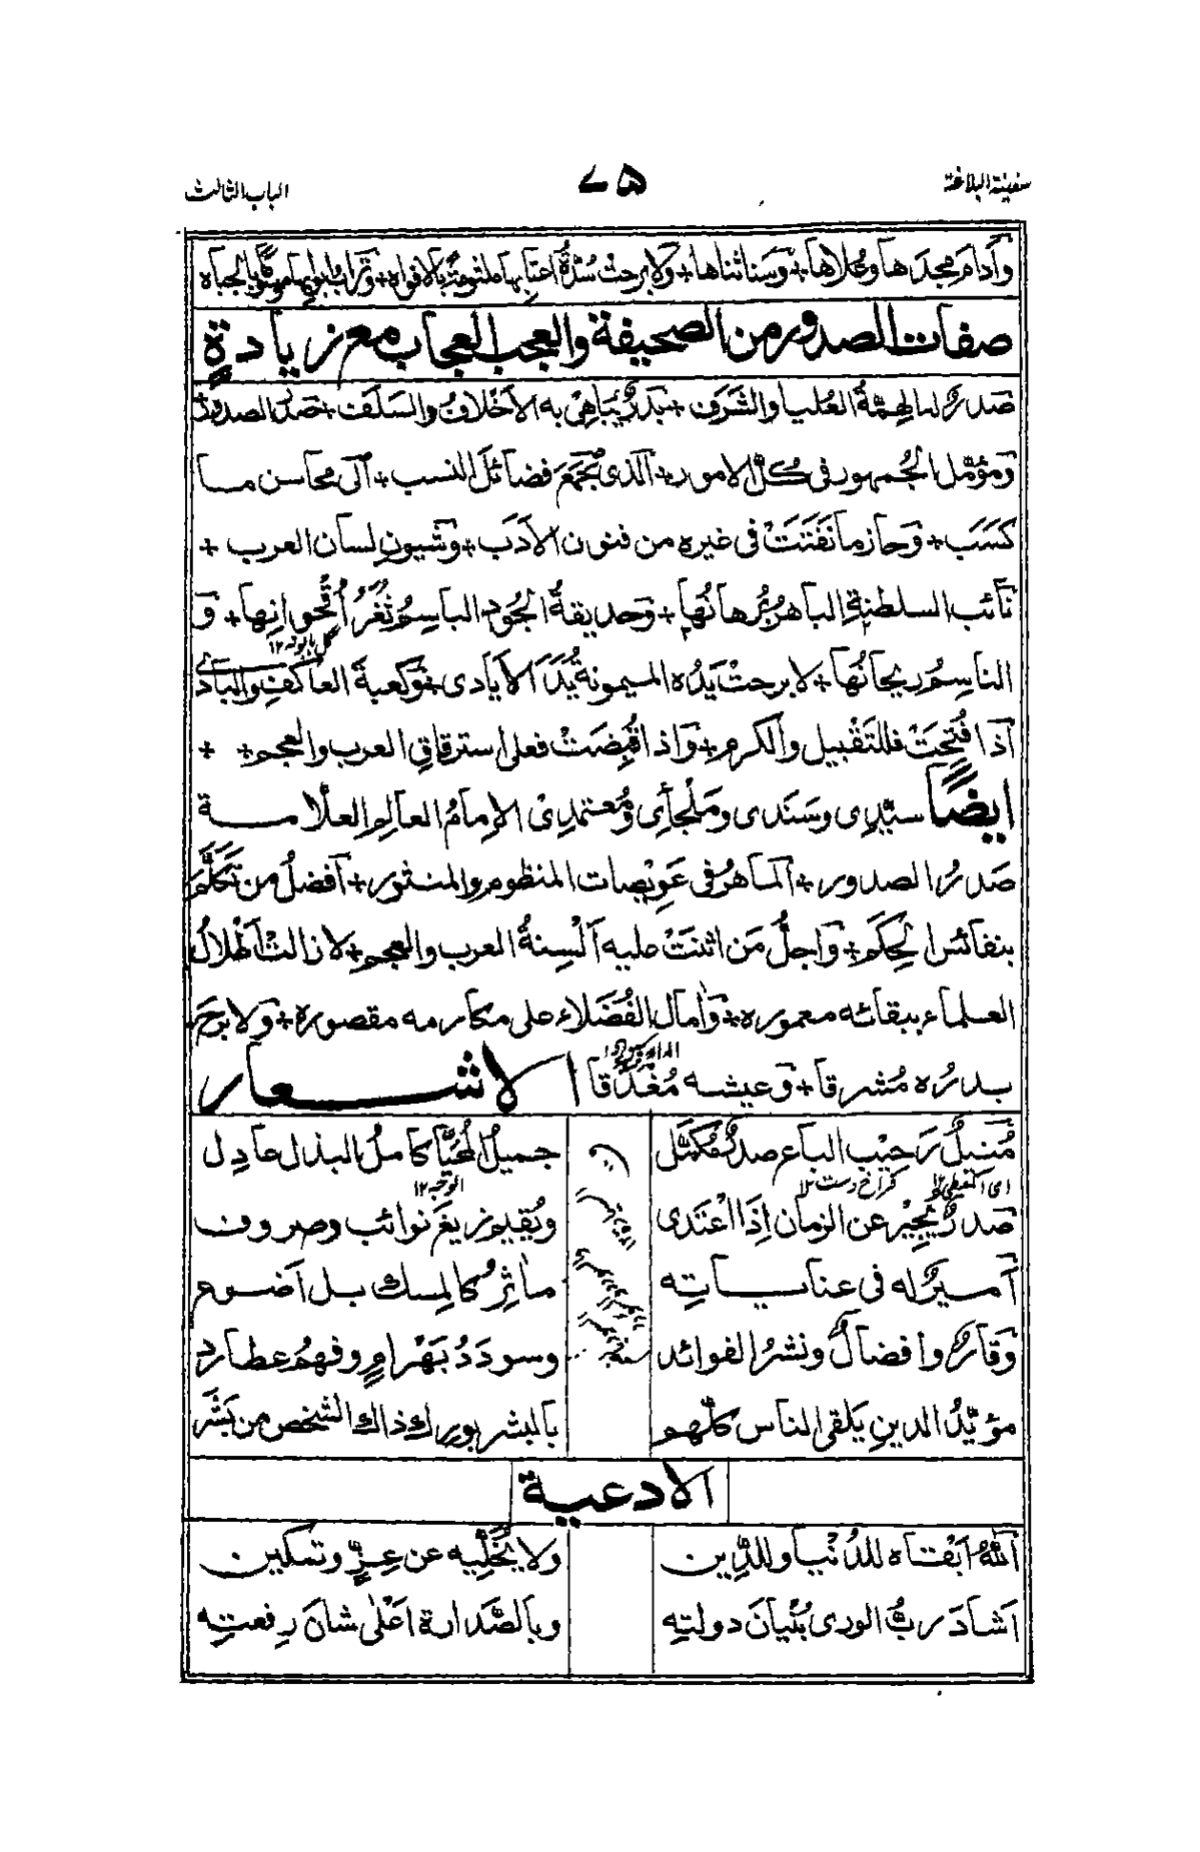 سفينة البلاغة
٧٥
الباب الثالث
وَاَدامَ مجدَها وعُلاها + وَسَناءَ ثناها + وَلا برحتْ سُدّةُ اَعتابِها ملثومةً بالافواه + وَتراب ابوابها بالجباه
صفات الصدور من الصحيفة والعجب العجاب مع زيادةٍ
صَدرٌ له الهِمّةُ العُليا والشَرَف + بَدرٌ يُباهِي به الاَخْلافُ والسَلَف + صَدرُ الصدور
وَمؤمّل الجُمهور فى كُلّ الامور + اَلّذى جَمَعَ فضائلَ النسب + اِلى محاسن مــا
كَسَبَ + وَحازَ ما تفنّنَتْ فى غيره من فنون الاَدَب + وَشيونِ لسان العرب +
نَائب السلطنةِ الباهرِ بُرهانُها + وَحديقةُ الجُودِ الباسِمُ ثَغرُ اُقحُوانِها + وَ
گل بابونه ١٢
الناسِمُ ريحانُها + لا برحتْ يَدُه الميمونة يَدَ الاَيادى + وَكعبةَ العاكفِ والبادى
اَذا فُتِحَتْ فللتَقْبيل والكرم + وَاِذا قُبِضَتْ فعلى استرقاقِ العرب والعجم + +
ايضًا سيّدِى وسَنَدى ومَلْجَأِى وَمُعتمدِىْ الاِمامُ العالِم العلّامــة
صَدرُ الصدور + اَلماهرُ فى عَوِيصات المنظوم والمنثور + اَفضلُ من تَكَلَّمَ
بنفائس الحِكَم + وَاجلُّ مَن اثنَتْ عليه اَلْسِنةُ العرب والعجم + لا زالتْ اَطلالُ
العلماء ببقائه معموره + وَآمال الفُضَلاء على مكارمه مقصوره + وَلا برحَ
بدرُه مُشرقا + وَعيشه مُغْدَقا الاشعار
مُنبلٌ رَحيْب الباع صدرٌ مُكمَّل
جميلُ المُحَيَّا كاملُ البذل عادِل
فراخ دست ١٢
الوجه ١٢
صَدرٌ يُجِيْر عن الزمان اِذَا اعْتَدى
ويُقيم زيغَ نوائب وصروف
اَميرٌ له فى عنايــاتِه
ماٰثِرُ كالمِسك بل اَضْوع
وَقارٌ وافضالٌ ونشرُ الفوائد
وسوددُ بَهْرامٍ وفهمُ عطارد
مؤيّدُ الدين يَلقى الناس كلّهم
بالبشر بورك ذاك الشخص من بَشَر
الادعية
اَللهُ اَبْقاه للدُنْيا وللدِّين
ولا يُخَلِّيه عن عِزٍّ وتمكين
اَشادَ ربُّ الورى بُنْيانَ دولتِه
وبالصَّدارة اَعْلى شانَ رِفعتِه